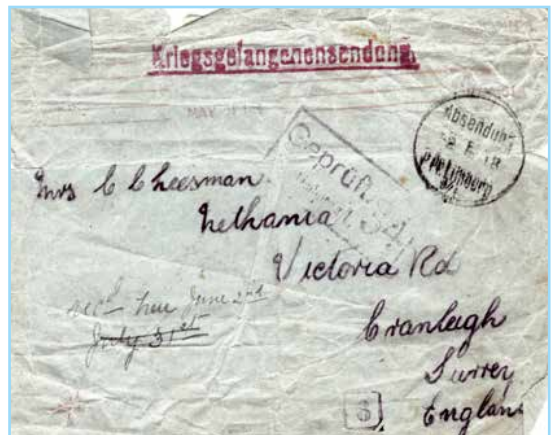 Kriegsgefangenensendung.
MAY
Absendung
Limburg
Geprüft
Mrs C Cheesman
Nethania
Victoria Rd
Cranleigh
Surrey
England
recd here June 2nd
July 31st
S